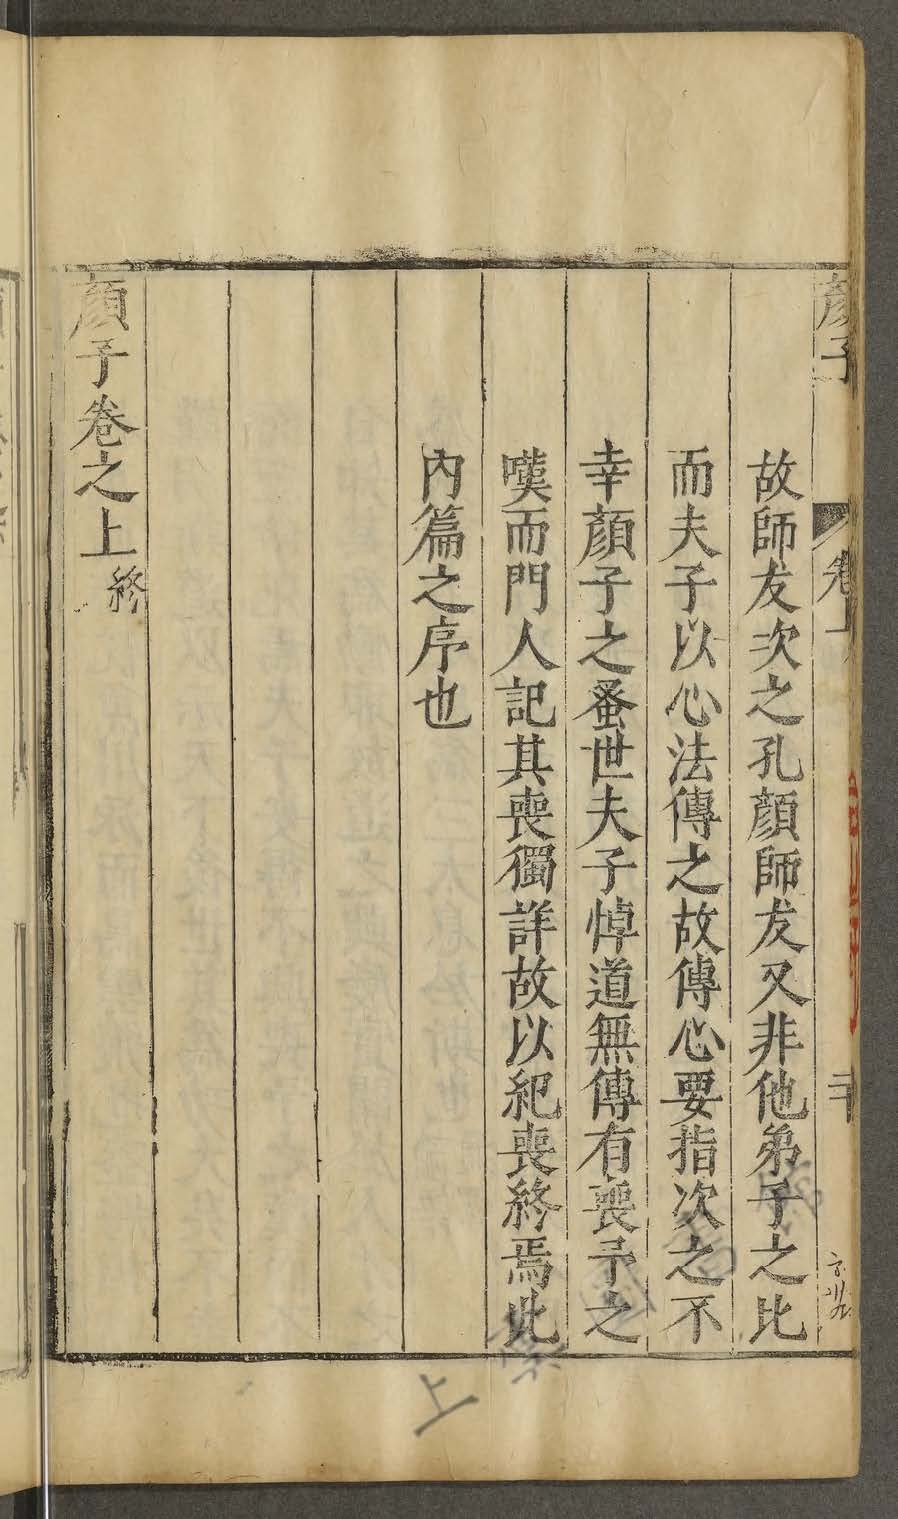 顏子
卷上
二十
故師友次之孔顏師友又非他弟子之比
而夫子以心法傳之故傳心要指次之不
幸顏子之蚤世夫子悼道無傳有喪予之
嘆而門人記其喪獨詳故以紀喪終焉此
內篇之序也
顏子卷之上終
上